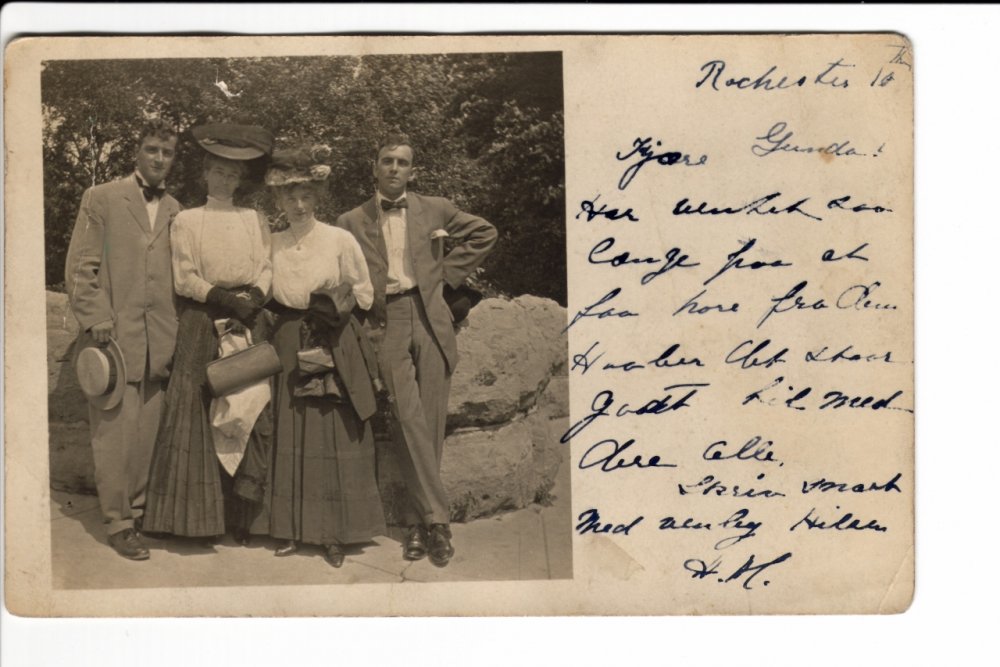 Rochester 10 Th
Kjære Gunda!
Har ventet saa
Længe paa at
faa høre fra dem
Haaber det staar
Godt til med
dere alle.
Skriv snart
Med venlig Hilsen
H. M.